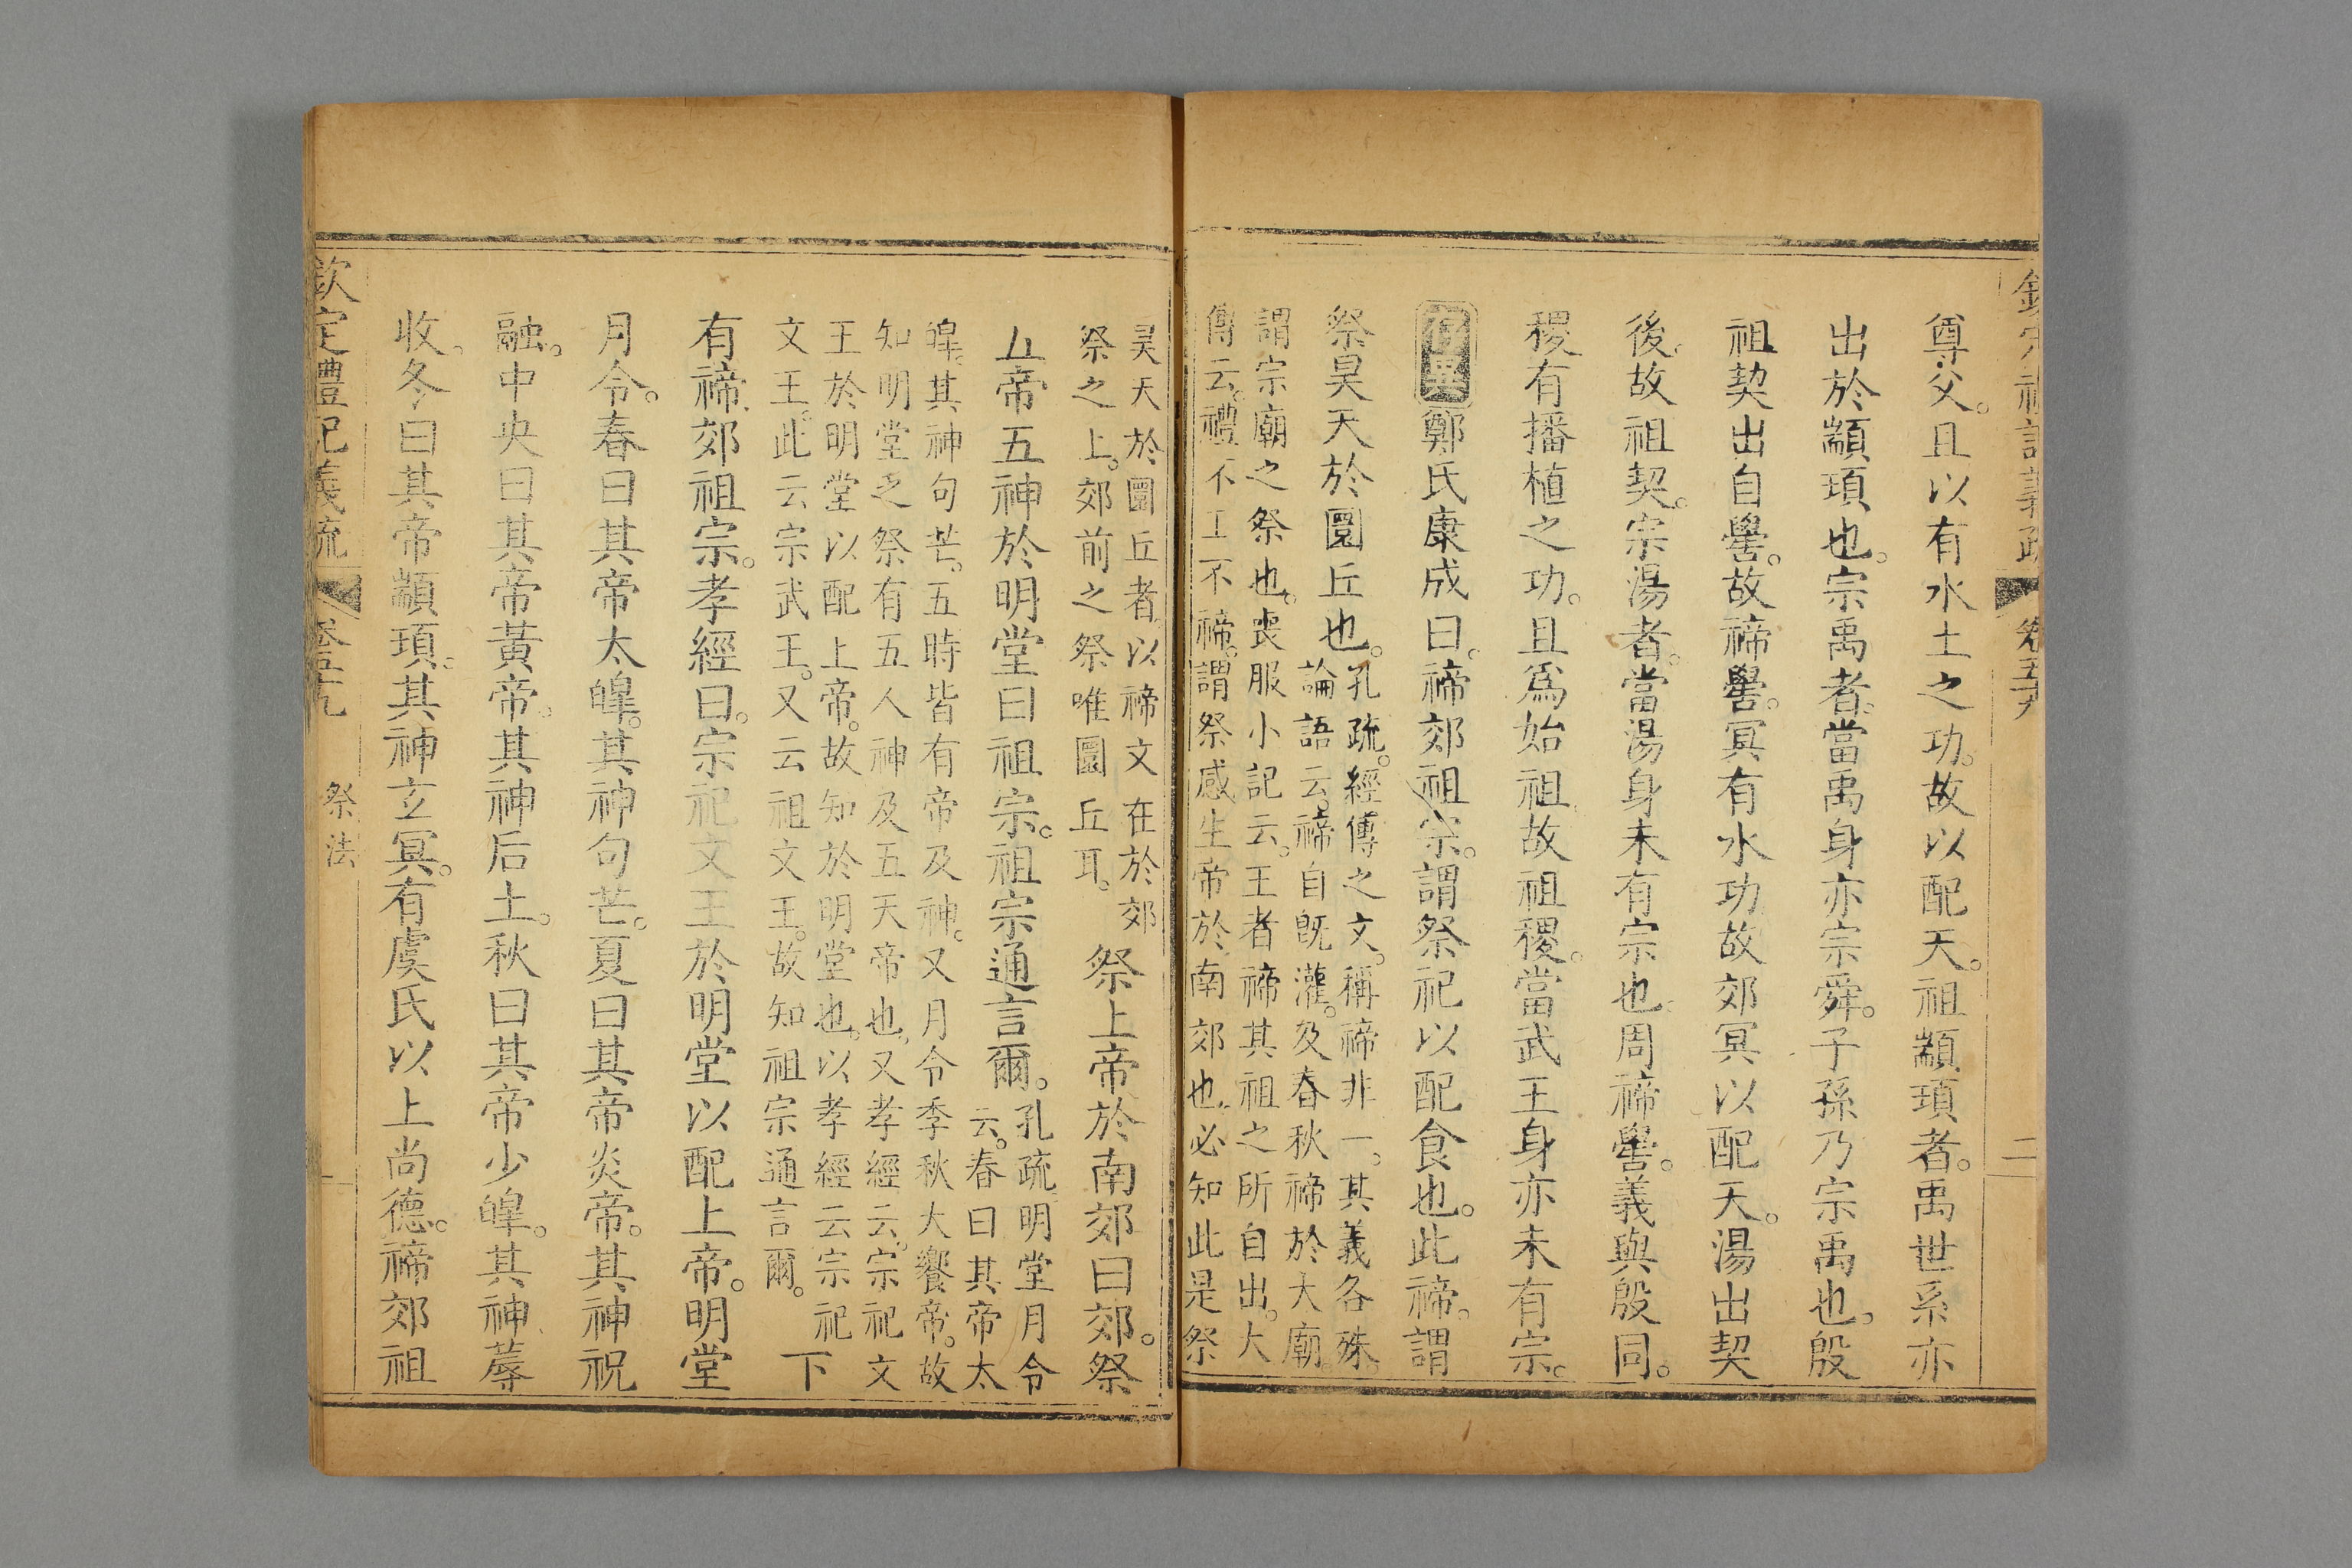 尊父。且以有水土之功。故以配天。祖顓頊者。禹世系亦
出於顓頊也。宗禹者。當禹身亦宗舜。子孫乃宗禹也。殷
祖契出自嚳。故禘嚳。冥有水功故郊冥以配天。湯出契
後。故祖契。宗湯者。當湯身未有宗也周禘嚳。義與殷同。
稷有播植之功。且爲始祖。故祖稷。當武王身亦未有宗。
鄭氏康成曰。禘郊祖宗。謂祭祀以配食也。此禘。謂
祭昊天於圜丘也。
孔疏。經傳之文。稱禘非一。其義各殊。
論語云。禘自旣灌。及春秋禘於大廟。
謂宗廟之祭也。喪服小記云。王者禘其祖之所自出。大
傳云。禮不王不禘。謂祭感生帝於南郊也。必知此是祭
昊天於圜丘者。以禘文在於郊
祭之上。郊前之祭唯圜丘耳。
祭上帝於南郊曰郊。祭
五帝五神於明堂曰祖宗。祖宗通言爾。
孔疏。明堂月令
云。春曰其帝太
皥。其神句芒。五時皆有帝及神。又月令季秋大饗帝。故
知明堂之祭有五人神及五天帝也。又孝經云。宗祀文
王於明堂以配上帝。故知於明堂也。以孝經云宗祀
文王。此云宗武王。又云祖文王。故知祖宗通言爾。
下
有禘郊祖宗。孝經曰。宗祀文王於明堂以配上帝。明堂
月令。春曰其帝太皥。其神句芒。夏曰其帝炎帝。其神祝
融。中央曰其帝黃帝。其神后土。秋曰其帝少皥。其神蓐
收。冬曰其帝顓頊。其神玄冥。有虞氏以上尚德。禘郊祖
欽定禮記義疏 卷五十九 祭法